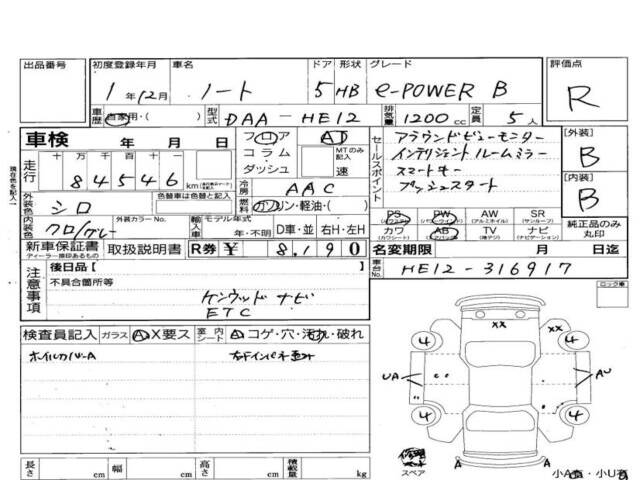 出品番号 初度登録年月 車名 ドア 形状 グレード 評価点
1年12月 ノート 5 HB e-POWER B R
車歴 自家用・( ) 型式 DAA-HE12 排気量 1200cc 定員 5人
車検 年 月 日 フロア AT
走行 十万 万 千 百 十 一 コラム MTのみ記入
84546 km ダッシュ 速
セールスポイント アラウンドビューモニター
インテリジェントルームミラー
スマートキー
プッシュスタート
[外装] B
[内装] B
冷房 AAC
外装色 シロ 色替車は色替前の色を記入 燃料 ガソリン・軽油・( )
内装色 クロ/グレー 外装カラーNo. 輸入車 モデル年式 年・不明 D車・並 右H・左H
PS (パワステ) PW (パワーウインドウ) AW (アルミホイル) SR (サンルーフ)
カワ (カワシート) AB (エアバッグ) TV (地デジ) ナビ (ナビゲーション)
純正品のみ丸印
新車保証書 取扱説明書 R券 ¥8,190
ディーラー捺印あるもの
名変期限 月 日迄
車台No. HE12-316917
注意事項 後日品【 】
不具合箇所等
ケンウッドナビ
ETC
ロック車
検査員記入 ガラス A X要ス 室内シート A コゲ・穴・汚れ・破れ
ホイルカバーA
XX
4 4
UA AU
4 4
A A
長さ cm 幅 cm 高さ cm 積載量 kg
スペア 小A有・小U有